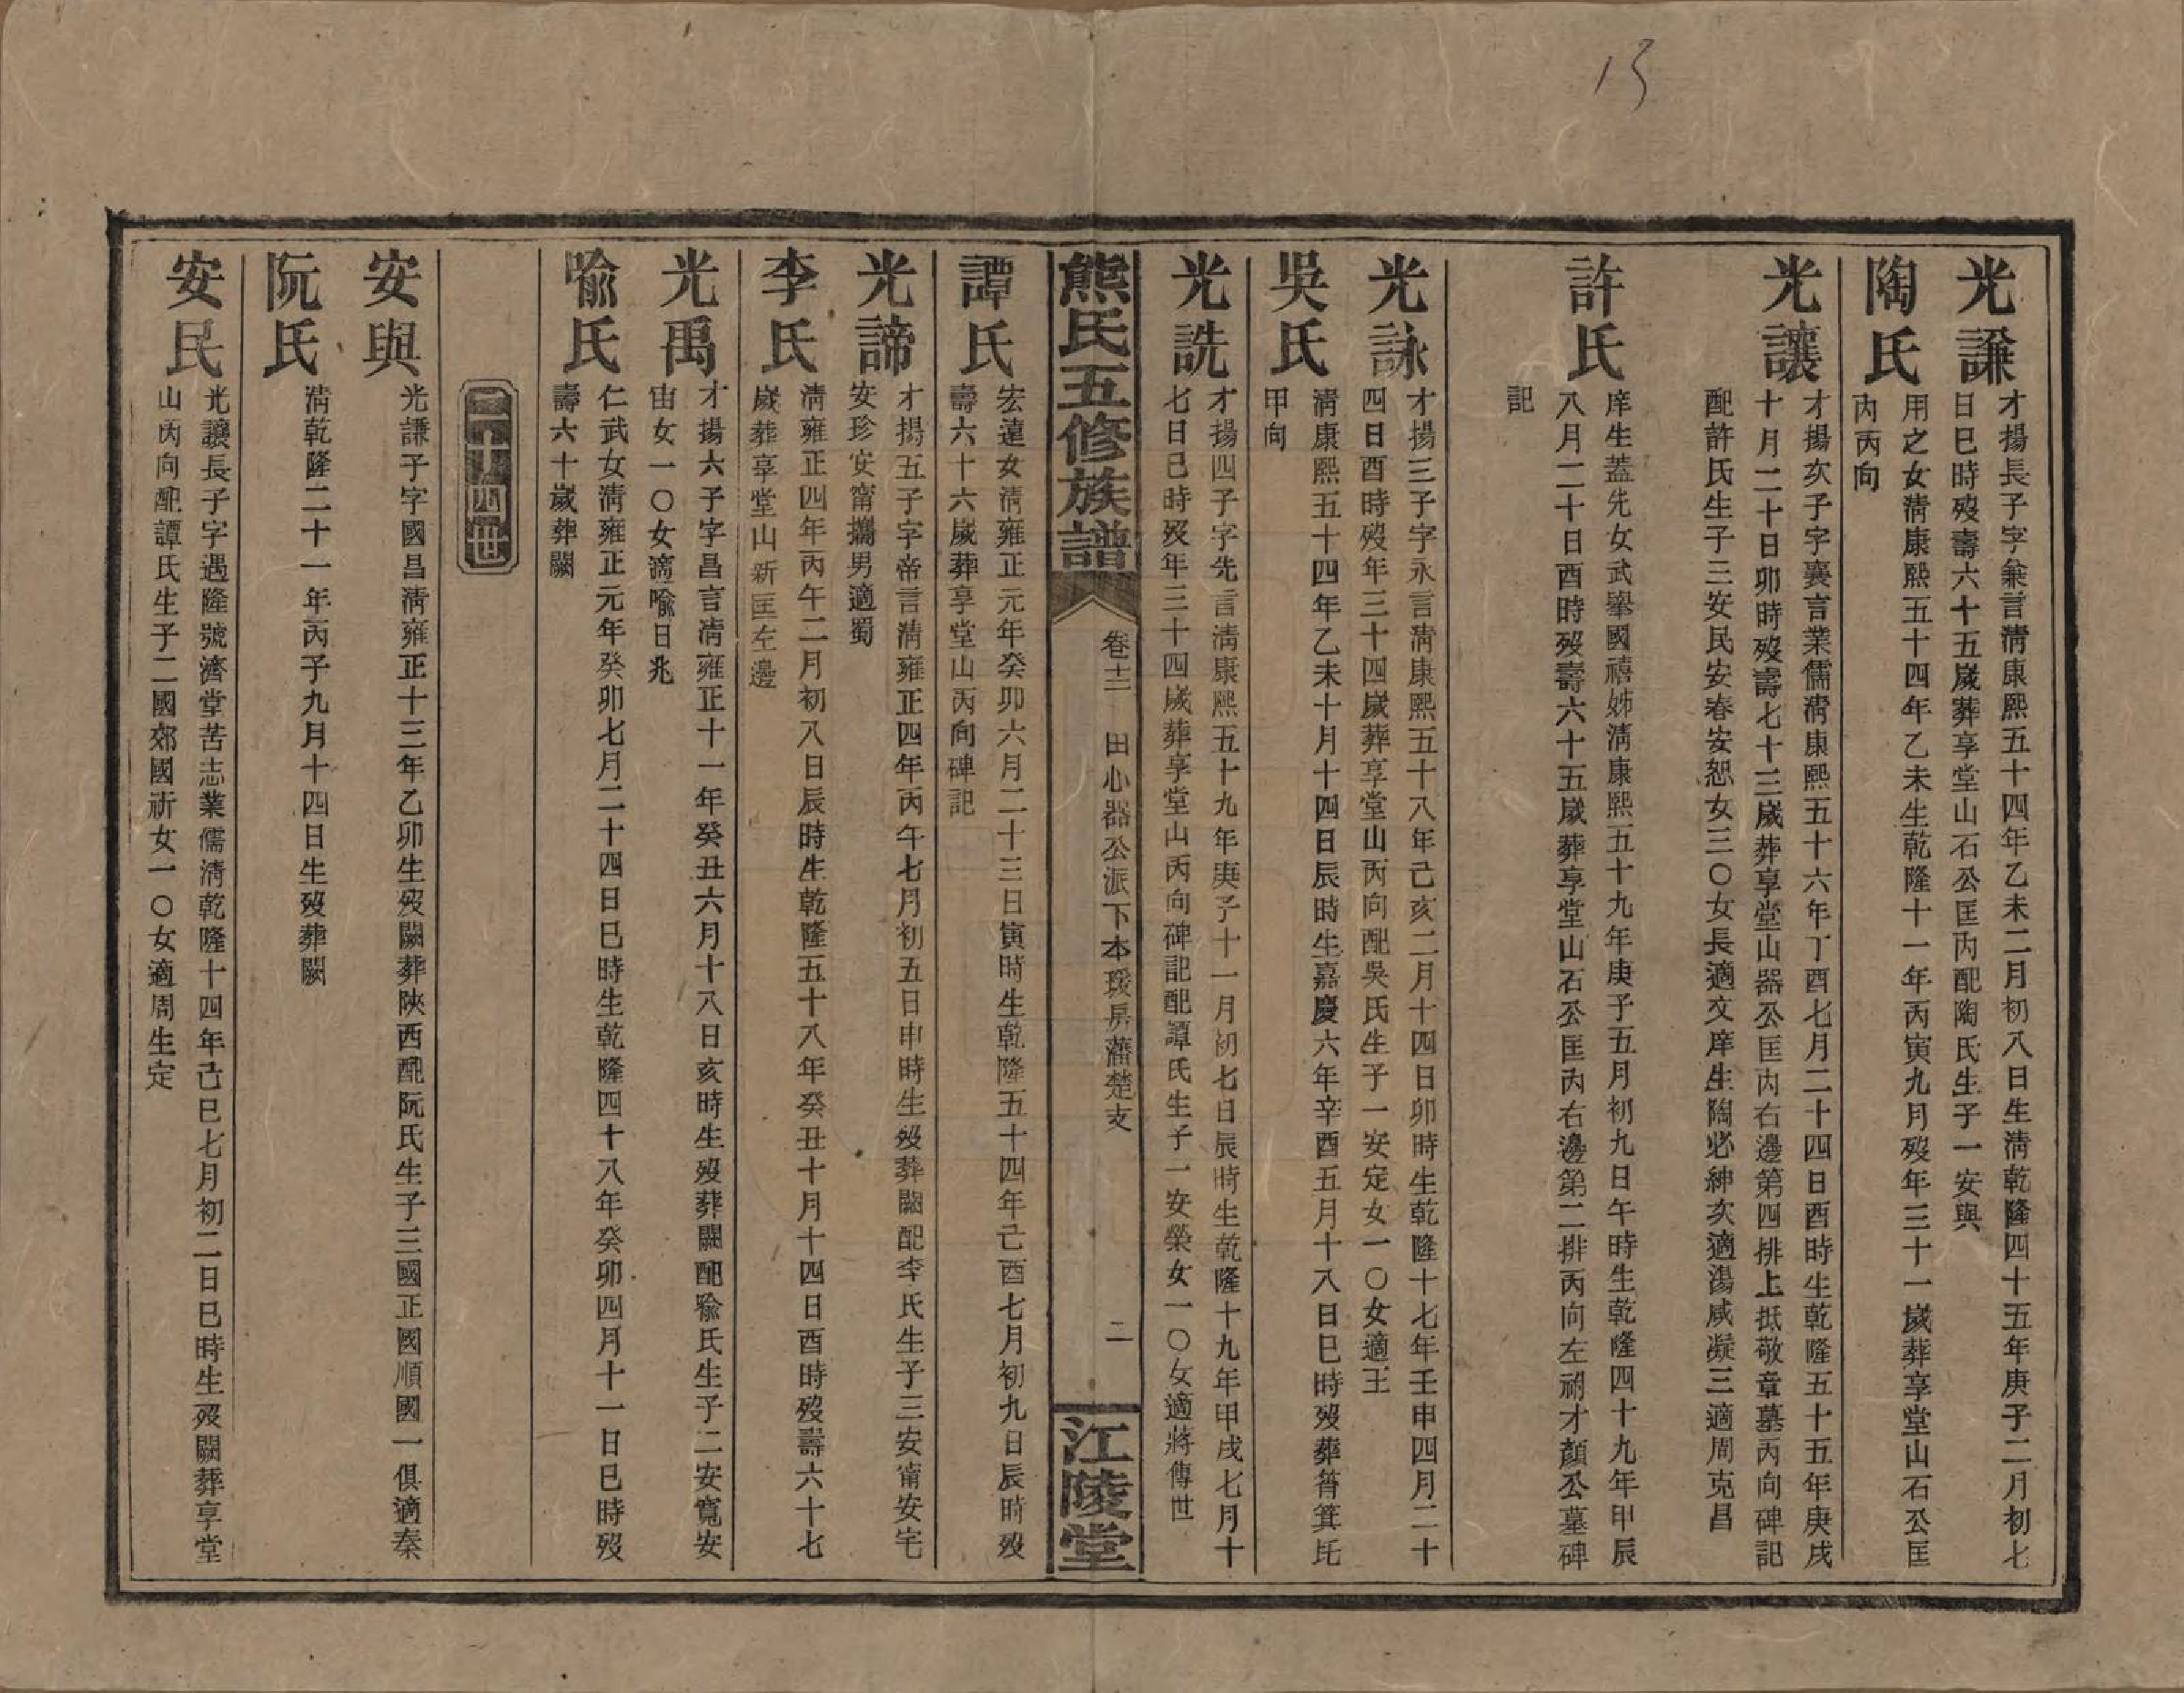 13
光謙
才揚長子字兼言淸康熙五十四年乙未二月初八日生淸乾隆四十五年庚子二月初七
日巳時歿壽六十五歲葬享堂山石公匡丙配陶氏生子一安與
陶氏
用之女淸康熙五十四年乙未生乾隆十一年丙寅九月歿年三十一歲葬享堂山石公匡
內丙向
光讓
才揚次子字襄言業儒淸康熙五十六年丁酉七月二十四日酉時生乾隆五十五年庚戌
十月二十日卯時歿壽七十三歲葬享堂山器公匡內右邊第四排上抵敬章墓丙向碑記
配許氏生子三安民安春安恕女三〇女長適文庠生陶必紳次適湯咸凝三適周克昌
許氏
庠生蓋先女武舉國禧姊淸康熙五十九年庚子五月初九日午時生乾隆四十九年甲辰
八月二十日酉時歿壽六十五歲葬享堂山石公匡內右邊第二排丙向左祔才顏公墓碑
記
光詠
才揚三子字永言淸康熙五十八年己亥二月十四日卯時生乾隆十七年壬申四月二十
四日酉時歿年三十四歲葬享堂山丙向配吳氏生子一安定女一〇女適王
吳氏
淸康熙五十四年乙未十月十四日辰時生嘉慶六年辛酉五月十八日巳時歿葬筲箕坵
甲向
光詵
才揚四子字先言淸康熙五十九年庚子十一月初七日辰時生乾隆十九年甲戌七月十
七日巳時歿年三十四歲葬享堂山丙向碑記配譚氏生子一安榮女一〇女適蔣傳世
熊氏五修族譜
卷十三
田心器公派下本瑗房藩楚支
二
江陵堂
譚氏
宏遠女淸雍正元年癸卯六月二十三日寅時生乾隆五十四年己酉七月初九日辰時歿
壽六十六歲葬享堂山丙向碑記
光諦
才揚五子字帝言淸雍正四年丙午七月初五日申時生歿葬闕配李氏生子三安甯安宅
安珍安甯攜男適蜀
李氏
淸雍正四年丙午二月初八日辰時生乾隆五十八年癸丑十月十四日酉時歿壽六十七
歲葬享堂山新匡左邊
光禹
才揚六子字昌言淸雍正十一年癸丑六月十八日亥時生歿葬闕配喩氏生子二安寬安
宙女一〇女適喩日兆
喩氏
仁武女淸雍正元年癸卯七月二十四日巳時生乾隆四十八年癸卯四月十一日巳時歿
壽六十歲葬闕
二十四世
安與
光謙子字國昌淸雍正十三年乙卯生歿闕葬陝西配阮氏生子三國正國順國一俱適秦
阮氏
淸乾隆二十一年丙子九月十四日生歿葬闕
安民
光讓長子字遇隆號濟堂苦志業儒淸乾隆十四年己巳七月初二日巳時生歿闕葬享堂
山丙向配譚氏生子二國郊國祈女一〇女適周生定